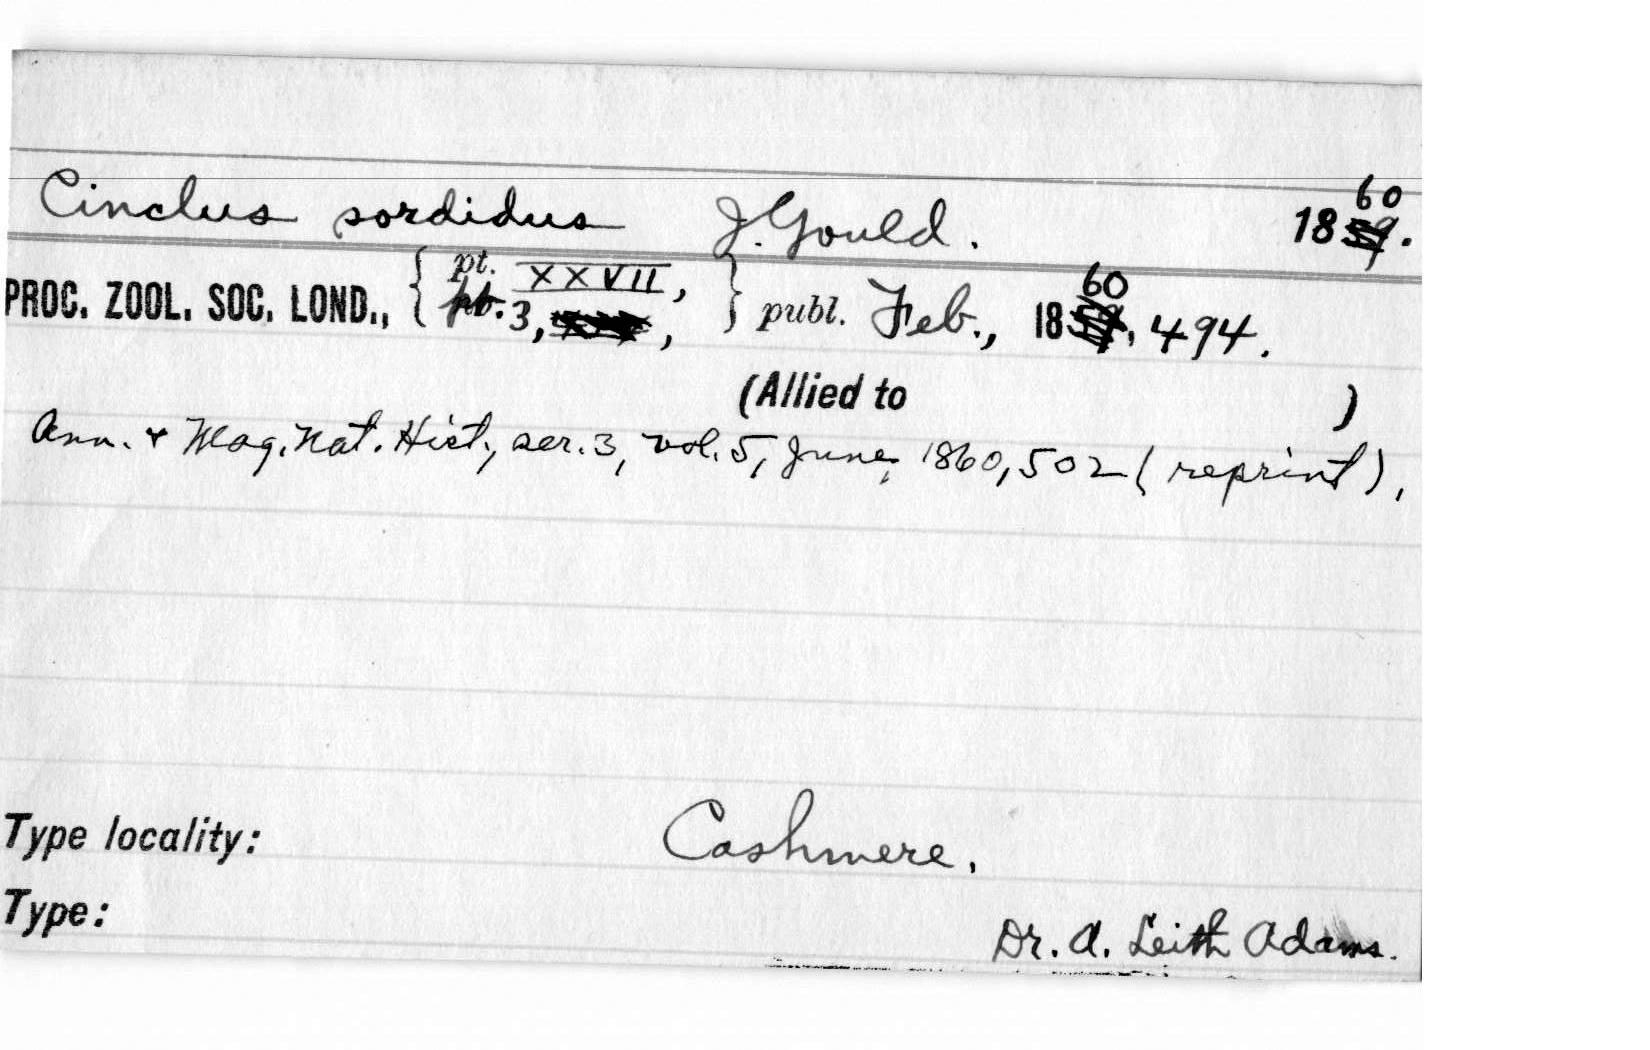 Cinclus sordidus J. Gould. 1860.
PROC. ZOOL. SOC. LOND., { pt. XXVII, pt. 3, } publ. Feb., 1860, 494.
(Allied to )
Ann. & Mag. Nat. Hist., ser. 3, vol. 5, June, 1860, 502 (reprint),
Type locality: Cashmere.
Type: Dr. A. Leith Adams.